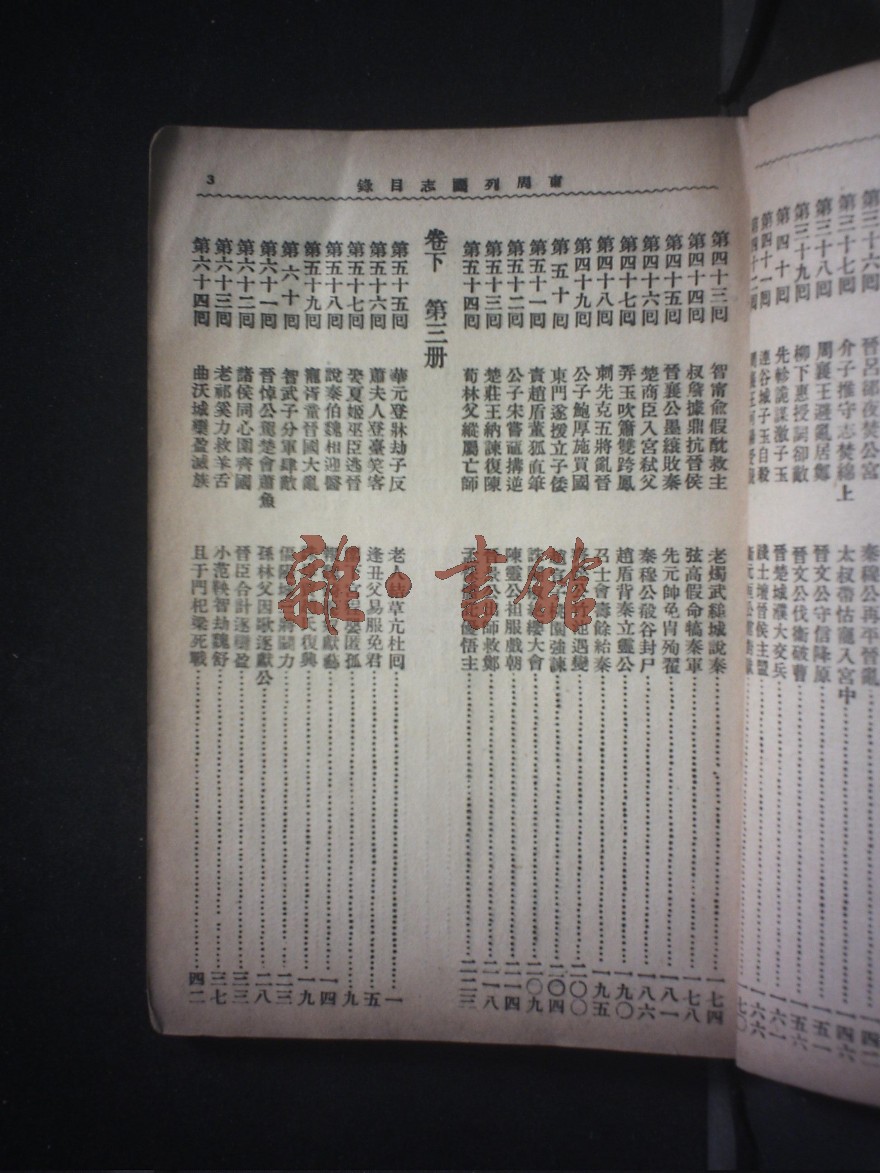 第三十六囘 晉呂郤夜焚公宮 秦穆公再平晉亂 一四二
第三十七囘 介子推守志焚綿上 太叔帶怙寵入宮中 一四六
第三十八囘 周襄王避亂居鄭 晉文公守信降原 一五一
第三十九囘 柳下惠授詞卻敵 晉文公伐衞破曹 一五六
第四十囘 先軫詭謀激子玉 晉楚城濮大交兵 一六一
第四十一囘 連谷城子玉自殺 踐土壇晉侯主盟 一六六
第四十二囘 一七〇
東周列國志目錄 3
第四十三囘 智甯兪假酖救主 老燭武縋城說秦 一七四
第四十四囘 叔詹據鼎抗晉侯 弦高假命犒秦軍 一七八
第四十五囘 晉襄公墨縗敗秦 先元帥免胄殉翟 一八一
第四十六囘 楚商臣入宮弑父 秦穆公殽谷封尸 一八六
第四十七囘 弄玉吹簫雙跨鳳 趙盾背秦立靈公 一九〇
第四十八囘 刺先克五將亂晉 召士會壽餘紿秦 一九五
第四十九囘 公子鮑厚施買國 遇變 二〇〇
第五十囘 東門遂援立子倭 強諫 二〇四
第五十一囘 責趙盾董狐直筆 大會 二〇九
第五十二囘 公子宋嘗黿搆逆 陳靈公衵服戲朝 二一四
第五十三囘 楚莊王納諫復陳 師救鄭 二一八
第五十四囘 荀林父縱屬亡師 悟主 二二三
卷下 第三册
第五十五囘 華元登牀劫子反 老人結草亢杜囘 一
第五十六囘 蕭夫人登臺笑客 逢丑父易服免君 五
第五十七囘 娶夏姬巫臣逃晉 匿孤 九
第五十八囘 說秦伯魏相迎醫 獻藝 一四
第五十九囘 寵胥童晉國大亂 復興 一九
第六十囘 智武子分軍肆敵 鬬力 二三
第六十一囘 晉悼公駕楚會蕭魚 孫林父因歌逐獻公 二八
第六十二囘 諸侯同心圍齊國 晉臣合計逐欒盈 三三
第六十三囘 老祁奚力救羊舌 小范鞅智劫魏舒 三七
第六十四囘 曲沃城欒盈滅族 且于門杞梁死戰 四二
雜·書館